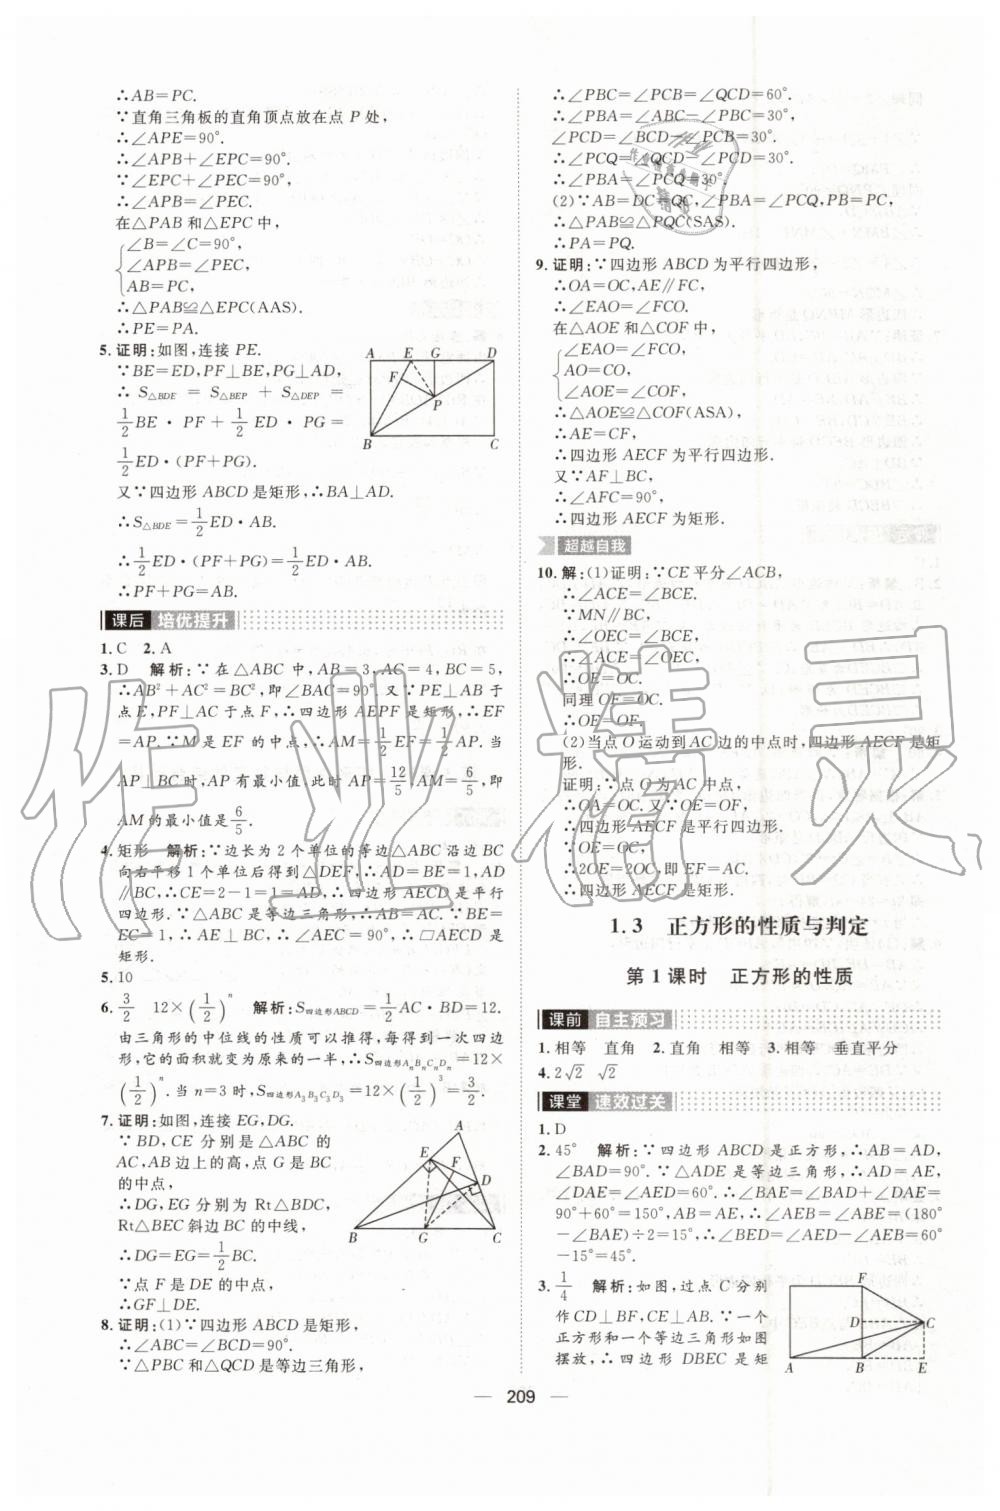 ∴AB=PC.
∵直角三角板的直角顶点放在点 P 处,
∴∠APE=90°.
∴∠APB+∠EPC=90°.
∵∠PEC+∠EPC=90°,
∴∠APB=∠PEC.
在△PAB 和△EPC 中,
∠B=∠C=90°,
∠APB=∠PEC,
AB=PC,
∴△PAB≌△EPC(AAS).
∴PE=PA.
5. 证明:如图,连接 PE.
∵BE=ED,PF⊥BE,PG⊥AD,
∴ S△BDE = S△BEP + S△DEP =
1/2 BE · PF + 1/2 ED · PG =
1/2 ED·(PF+PG).
又∵四边形 ABCD 是矩形,∴BA⊥AD.
∴S△BDE=1/2 ED·AB.
∴1/2 ED·(PF+PG)=1/2 ED·AB.
∴PF+PG=AB.
A E G D
F
P
B C
课后 培优提升
1. C 2. A
3. D 解析:∵在△ABC 中,AB=3,AC=4,BC=5,
∴AB²+AC²=BC²,即∠BAC=90°.又∵PE⊥AB 于
点 E,PF⊥AC 于点 F,∴四边形 AEPF 是矩形,∴EF
=AP.∵M 是 EF 的中点,∴AM=1/2 EF=1/2 AP. 当
AP⊥BC 时,AP 有最小值,此时 AP=12/5,AM=6/5,即
AM 的最小值是 6/5.
4. 矩形 解析:∵边长为 2 个单位的等边△ABC 沿边 BC
向右平移 1 个单位后得到△DEF,∴AD=BE=1,AD
∥BC,∴CE=2-1=1=AD,∴四边形 AECD 是平行
四边形. ∵△ABC 是等边三角形,∴AB=AC. ∵BE=
EC=1,∴AE⊥BC,∴∠AEC=90°,∴□AECD 是
矩形.
5. 10
6. 3/2 12×(1/2)ⁿ 解析:S四边形ABCD=1/2 AC·BD=12.
由三角形的中位线的性质可以推得,每得到一次四边
形,它的面积就变为原来的一半,∴S四边形AnBnCnDn=12×
(1/2)ⁿ. 当 n=3 时,S四边形A₃B₃C₃D₃=12×(1/2)³=3/2.
7. 证明:如图,连接 EG,DG.
∵ BD,CE 分别是△ABC 的
AC,AB 边上的高,点 G 是 BC
的中点,
∴DG,EG 分别为 Rt△BDC,
Rt△BEC 斜边 BC 的中线,
∴DG=EG=1/2 BC.
∵点 F 是 DE 的中点,
∴GF⊥DE.
A
E F
D
B G C
8. 证明:(1)∵四边形 ABCD 是矩形,
∴∠ABC=∠BCD=90°.
∵△PBC 和△QCD 是等边三角形,
∴∠PBC=∠PCB=∠QCD=60°.
∴∠PBA=∠ABC-∠PBC=30°,
∠PCD=∠BCD-∠PCB=30°.
∴∠PCQ=∠QCD-∠PCD=30°.
∴∠PBA=∠PCQ=30°.
(2)∵AB=DC=QC,∠PBA=∠PCQ,PB=PC,
∴△PAB≌△PQC(SAS).
∴PA=PQ.
9. 证明:∵四边形 ABCD 为平行四边形,
∴OA=OC,AE∥FC,
∴∠EAO=∠FCO.
在△AOE 和△COF 中,
∠EAO=∠FCO,
AO=CO,
∠AOE=∠COF,
∴△AOE≌△COF(ASA).
∴AE=CF,
∴四边形 AECF 为平行四边形.
又∵AF⊥BC,
∴∠AFC=90°,
∴四边形 AECF 为矩形.
超越自我
10. 解:(1)证明:∵CE 平分∠ACB,
∴∠ACE=∠BCE.
∵MN∥BC,
∴∠OEC=∠BCE,
∴∠ACE=∠OEC,
∴OE=OC.
同理 OF=OC.
∴OE=OF.
(2)当点 O 运动到 AC 边的中点时,四边形 AECF 是矩
形.
证明:∵点 O 为 AC 中点,
∴OA=OC. 又∵OE=OF,
∴四边形 AECF 是平行四边形.
∵OE=OC,
∴2OE=2OC,即 EF=AC.
∴四边形 AECF 是矩形.
1.3 正方形的性质与判定
第 1 课时 正方形的性质
课前 自主预习
1. 相等 直角 2. 直角 相等 3. 相等 垂直平分
4. 2√2 √2
课堂 速效过关
1. D
2. 45° 解析:∵四边形 ABCD 是正方形,∴AB=AD,
∠BAD=90°. ∵△ADE 是等边三角形,∴AD=AE,
∠DAE=∠AED=60°. ∴∠BAE=∠BAD+∠DAE=
90°+60°=150°,AB=AE,∴∠ABE=∠AEB=(180°
-∠BAE)÷2=15°,∴∠BED=∠AED-∠AEB=60°
-15°=45°.
3. 1/4 解析:如图,过点 C 分别
作 CD⊥BF,CE⊥AB. ∵一个
正方形和一个等边三角形如图
摆放,∴四边形 DBEC 是矩
F
D C
A B E
209
作业精灵